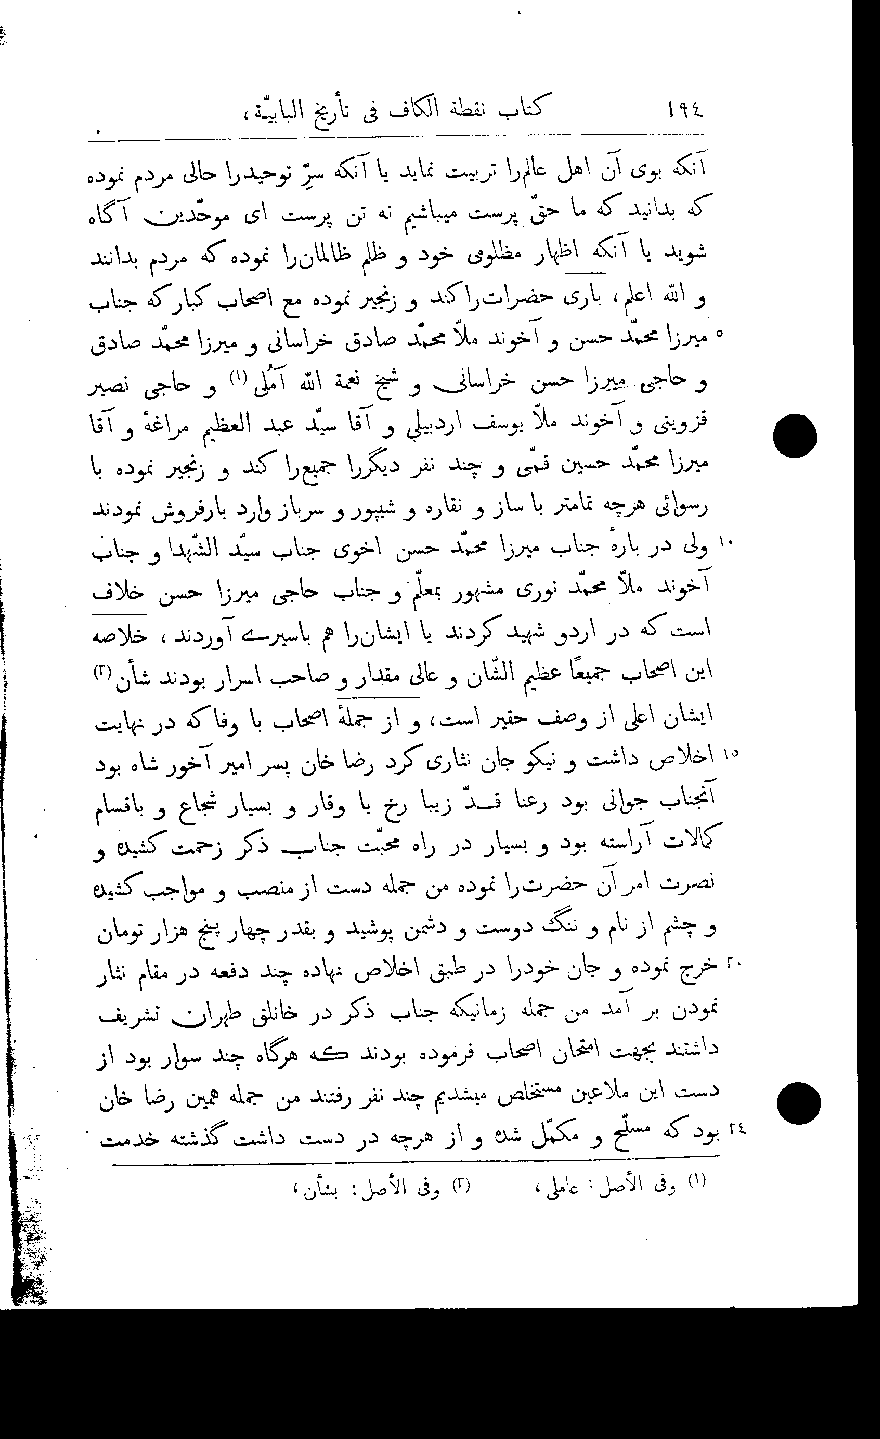 ١٩٤ کتاب نقطة الکاف فی تأریخ البابیّة،
آنکه بوی آن اهل عالم‌را تربیت نماید یا آنکه سرّ توحیدرا حالی مردم نموده
که بدانید که ما حقّ پرست میباشیم نه تن پرست ای موحّدین آگاه
شوید یا آنکه اظهار مظلومی خود و ظلم ظالمان‌را نموده که مردم بدانند
و الله اعلم، باری حضرات‌را کند و زنجیر نموده مع اصحاب کبار که جناب
٥ میرزا محمّد حسن و آخوند ملّا محمّد صادق خراسانی و میرزا محمّد صادق
و حاجی میرزا حسن خراسانی و شیخ نعمة الله آمُلی (١) و حاجی نصیر
قزوینی و آخوند ملّا یوسف اردبیلی و آقا سیّد عبد العظیم مراغهٔ و آقا
میرزا محمّد حسین قمّی و چند نفر دیگررا جمیع‌را کند و زنجیر نموده با
رسوائی هرچه تمامتر با ساز و نقاره و شیپور و سرباز وارد بارفروش نمودند
١٠ ولی در بارهٔ جناب میرزا محمّد حسن اخوی جناب سیّد الشّهدا و جناب
آخوند ملّا محمّد نوری مشهور بمعلّم و جناب حاجی میرزا حسن خلاف
است که در اردو شهید کردند یا ایشان‌را هم باسیری آوردند، خلاصه
این اصحاب جمیعًا عظیم الشّان و عالی مقدار و صاحب اسرار بودند شأن (٢)
ایشان اعلی از وصف حقیر است، و از جملهٔ اصحاب با وفا که در نهایت
١٥ اخلاص داشت و نیکو جان نثاری کرد رضا خان پسر امیر آخور شاه بود
آنجناب جوانی بود رعنا قدّ زیبا رخ با وقار و بسیار شجاع و باقسام
کمالات آراسته بود و بسیار در راه محبّت جناب ذکر زحمت کشیده و
نصرت امر آن حضرت‌را نموده من جمله دست از منصب و مواجب کشیده
و چشم از نام و ننگ دوست و دشمن پوشید و بقدر چهار پنج هزار تومان
٢٠ خرج نموده و جان خودرا در طبق اخلاص نهاده چند دفعه در مقام نثار
نمودن بر آمد من جمله زمانیکه جناب ذکر در خانلق طهران تشریف
داشتند بجهت امتحان اصحاب فرموده بودند که هرگاه چند سوار بود از
دست این ملاعین مستخلص میشدیم چند نفر رفتند من جمله همین رضا خان
٢٤ بود که مسلّح و مکمّل شده و از هرچه در دست داشت گذشته خدمت
(١) وفی الأصل: عاملی، (٢) وفی الأصل: بشأن،